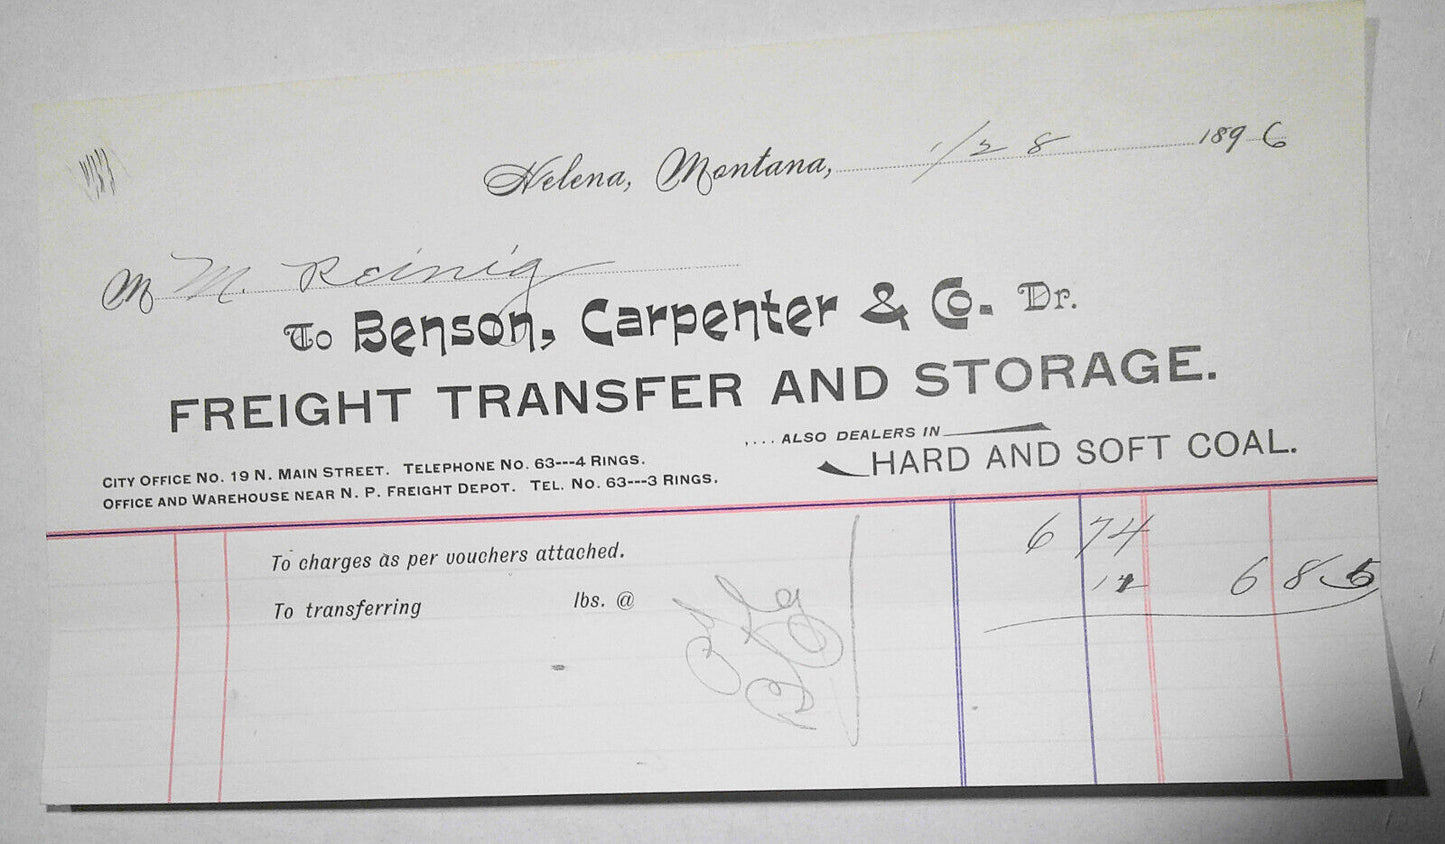 Helena, Montana, 1/28 1896
M M. Reinig
To Benson, Carpenter & Co. Dr.
FREIGHT TRANSFER AND STORAGE.
.... ALSO DEALERS IN
HARD AND SOFT COAL.
CITY OFFICE NO. 19 N. MAIN STREET. TELEPHONE NO. 63---4 RINGS.
OFFICE AND WAREHOUSE NEAR N. P. FREIGHT DEPOT. TEL. NO. 63---3 RINGS.
To charges as per vouchers attached. 6 74
To transferring lbs. @ 6 85